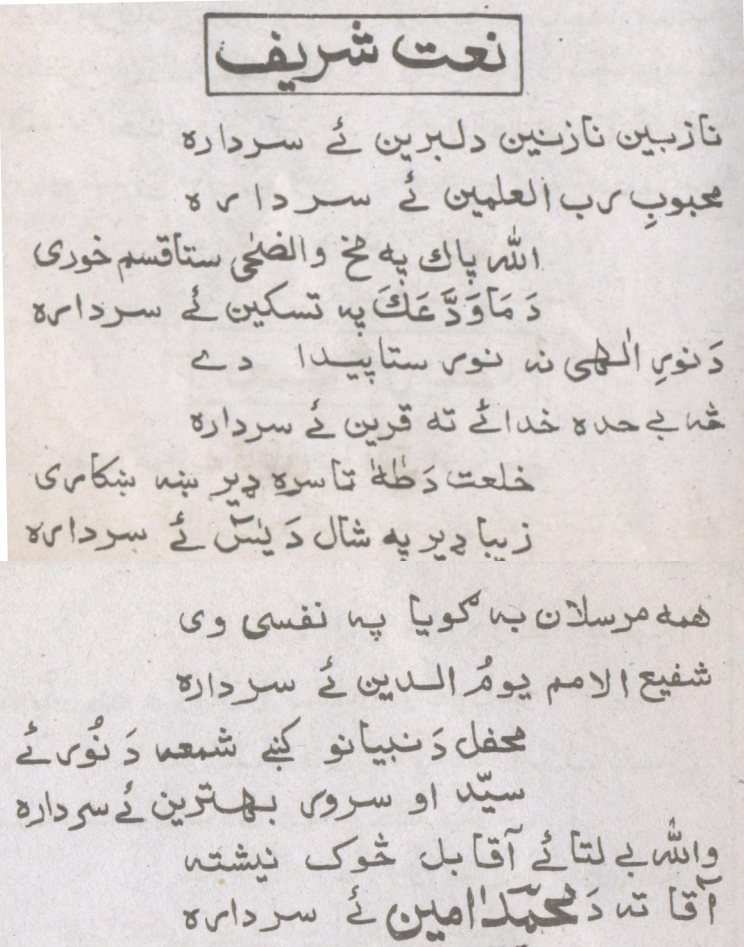 نعت شریف
نازبین نازنین دلبرین ئے سردارہ
محبوبِ رب العلمین ئے سردارہ
اللہ پاک پہ مخ والضحٰی ستا قسم خوری
دَ مَا وَدَّعَكَ پہ تسکین ئے سردارہ
دَ نورِ الٰہی نہ نور ستا پیدا دے
څہ بے حدہ خدائے تہ قرین ئے سردارہ
خلعت دَ طٰہٰ تا سرہ ډیر ښہ ښکاری
زیبا ډیر پہ شال دَ یٰسٓ ئے سردارہ
ھمہ مرسلان بہ گویا پہ نفسی وی
شفیع الامم یومُ الدین ئے سردارہ
محفل دَ نبیانو کښے شمعہ دَ نُور ئے
سیّد او سرور بہترین ئے سردارہ
واللہ بے لتا ئے آقا بل څوک نیشتہ
آقا تہ دَ محمّد امین ئے سردارہ